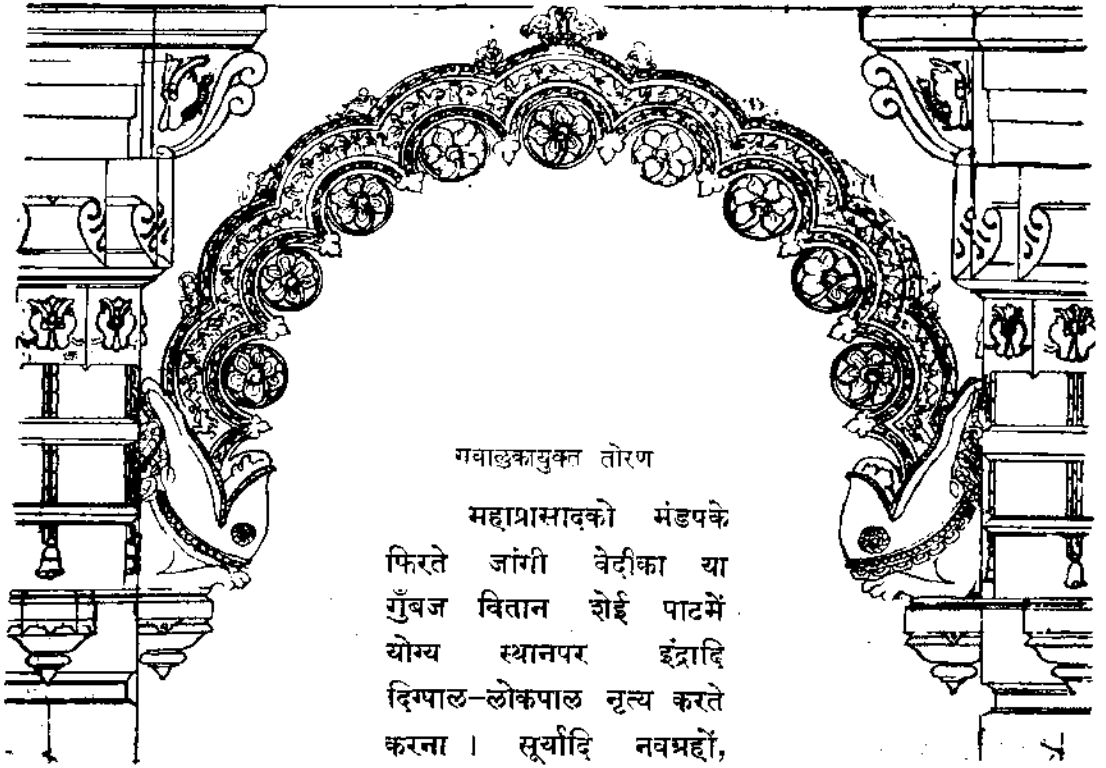 गवालुकायुक्त तोरण
महाप्रासादको मंडपके
फिरते जांगी वेदीका या
गुँबज वितान शेई पाटमें
योग्य स्थानपर इंद्रादि
दिग्पाल-लोकपाल नृत्य करते
करना । सूर्यादि नवग्रहों,